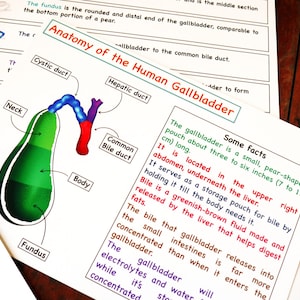 and is the middle section
The fundus is the rounded and distal end of the gallbladder, comparable to
the bottom portion of a pear.
gallbladder to the common bile duct.
gallbladder to form
Anatomy of the Human Gallbladder
Cystic duct
Hepatic duct
Neck
Common
Bile duct
Body
Fundus
Some facts
The gallbladder is a small, pear-shap
pouch about three to six inches (7 to 1
cm) long.
It is located in the upper right
abdomen, underneath the liver.
It serves as a storage pouch for bile by
holding it till the body needs it.
Bile is a greenish-brown fluid made and
released by the liver that helps digest
fats.
The bile that gallbladder releases into
the small intestines is far more
concentrated than when it enters the
gallbladder.
The gallbladder will
electrolytes and water
while it's
concentrated